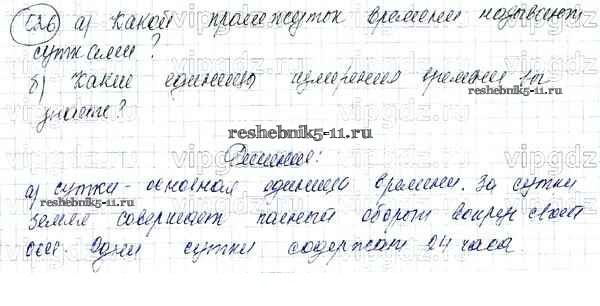 526 а) Какой промежуток времени называют
сутками?
б) Какие единицы измерения времени вы
знаете?
reshebnik5-11.ru
reshebnik5-11.ru
Решение:
а) Сутки - основная единица времени. За сутки
Земля совершает полный оборот вокруг своей
оси. Одни сутки содержат 24 часа.
reshebnik5-11.ru